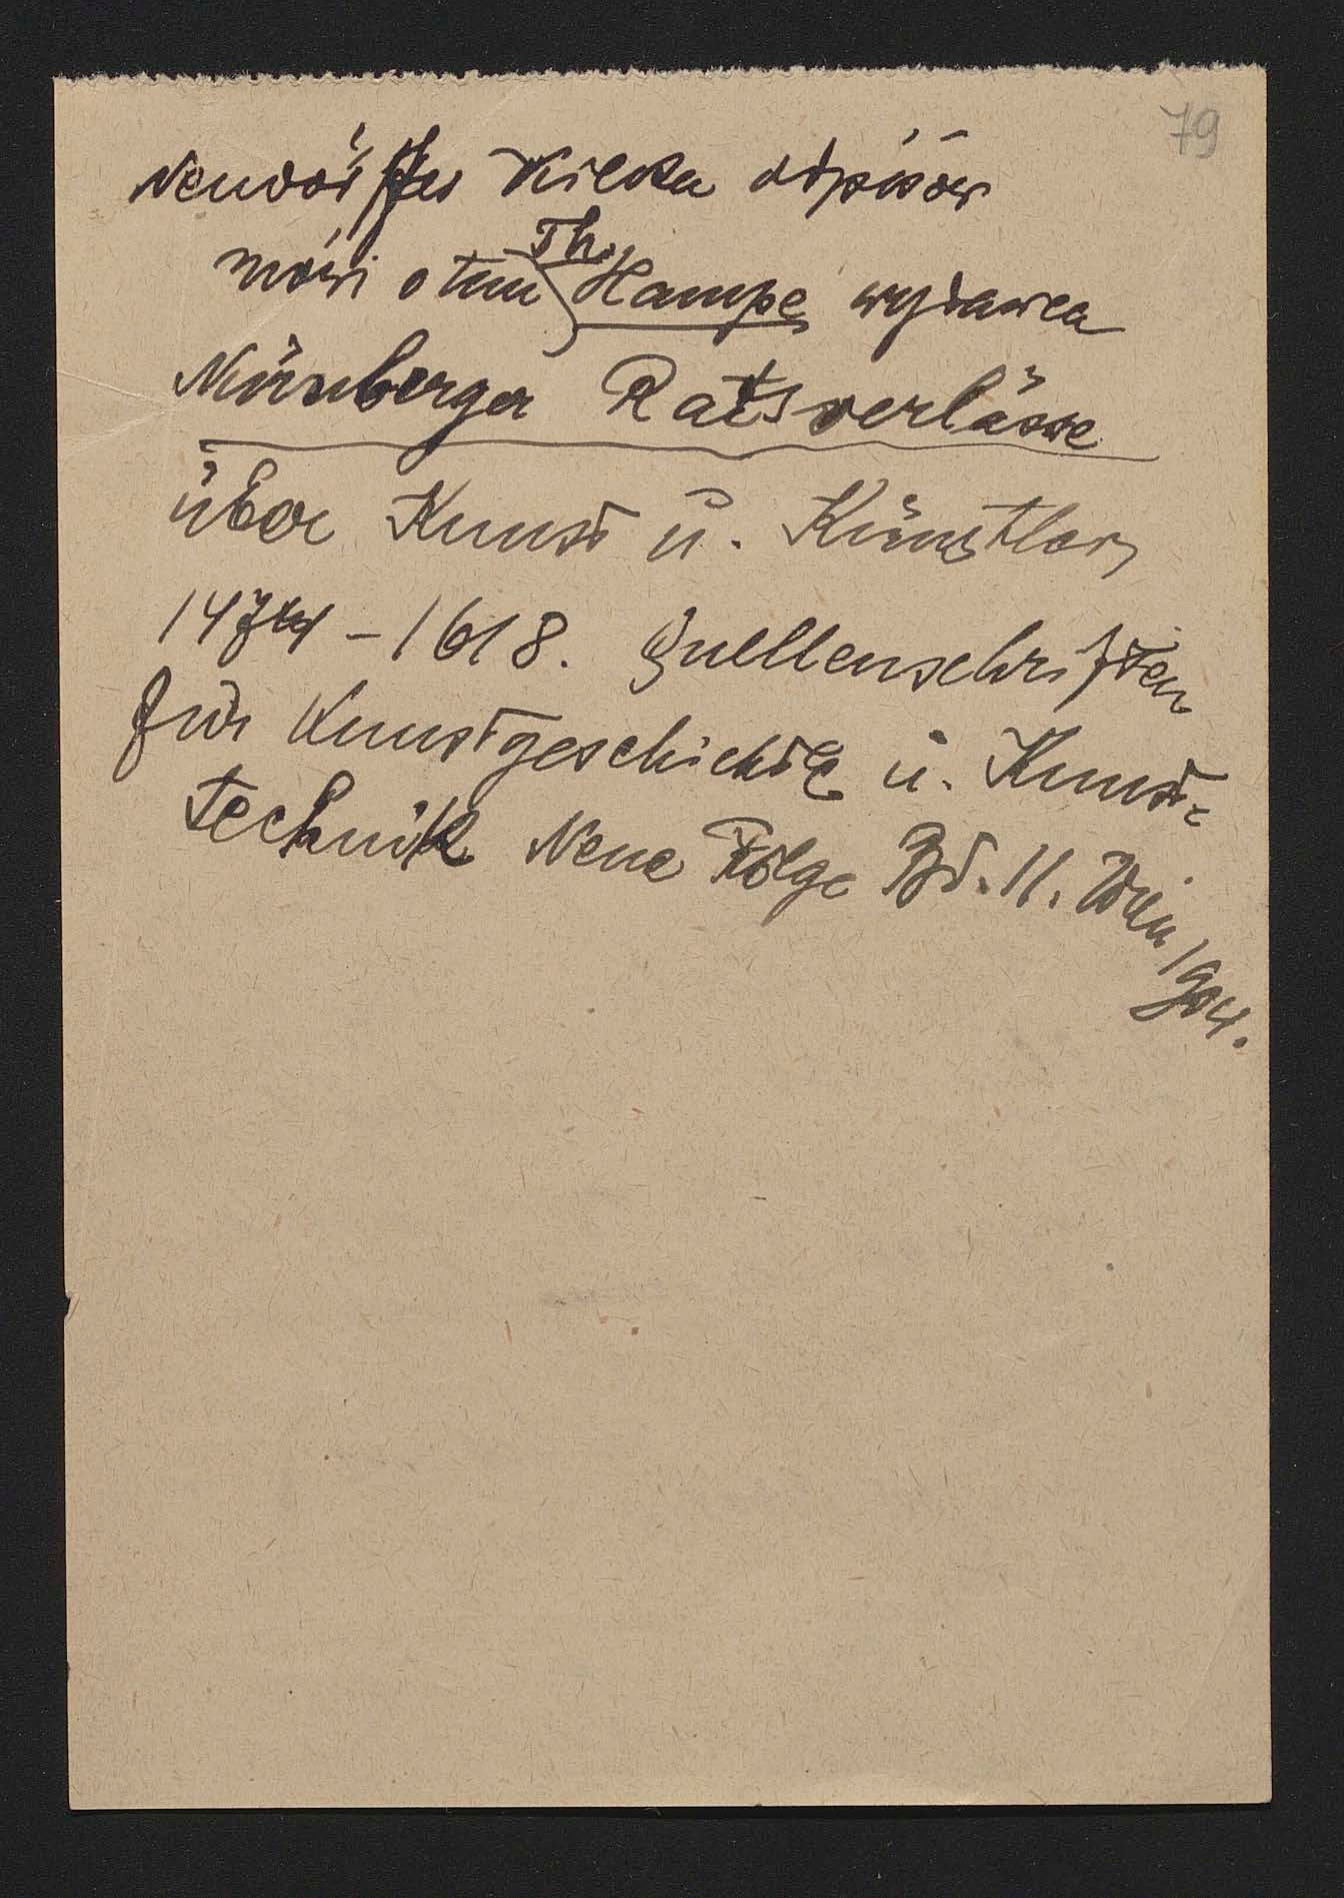 79
Neudörffer Kilka odpisów
mówi o tem Th. Hampe wydawca
Nürnberger Ratsverlässe
über Kunst u. Künstler
1474-1618. Quellenschriften
für Kunstgeschichte u. Kunst-
technik Neue Folge Bd. 11. Wien
1904.